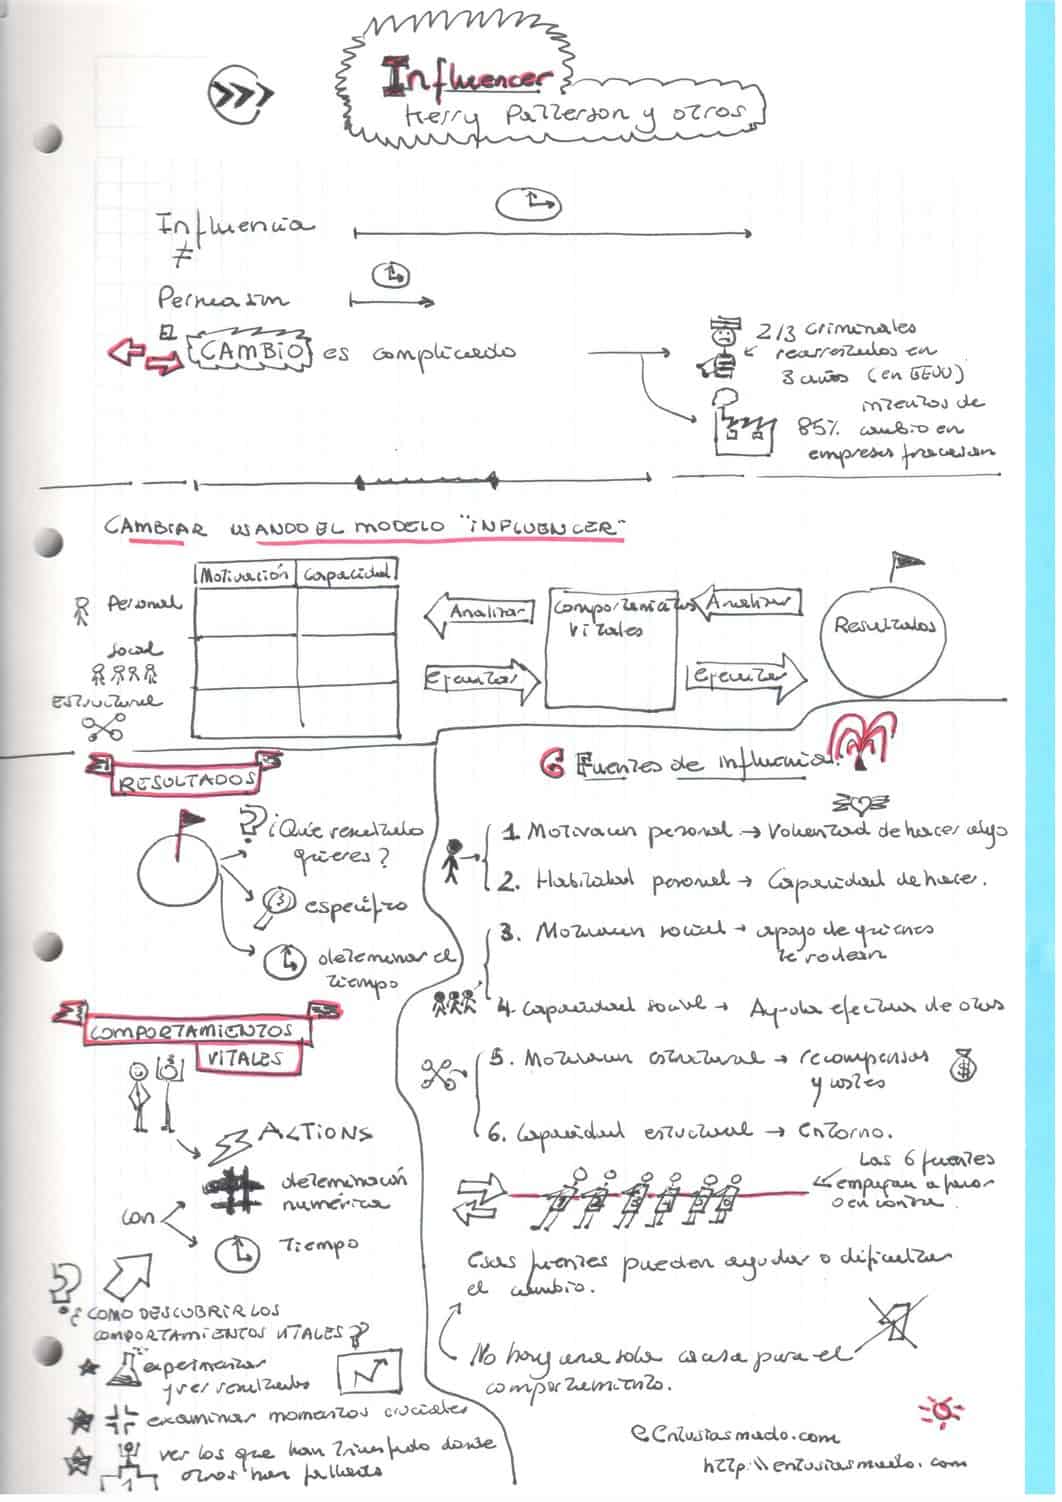 Influencer
Kerry Patterson y otros
Influencia
≠
Persuasion
El
CAMBIO es complicado
2/3 criminales
rearrestados en
3 años (en EEUU)
intentos de
85% cambio en
empresas fracasan
CAMBIAR USANDO EL MODELO "INFLUENCER"
Motivación Capacidad
Personal
Social
Estructural
Analizar
Ejecutar
Comportamientos
Vitales
Analizar
Ejecutar
Resultados
RESULTADOS
? ¿Qué resultado
quieres?
específico
determinar el
tiempo
COMPORTAMIENTOS
VITALES
ACTIONS
con
determinación
numérica
Tiempo
? ¿COMO DESCUBRIR LOS
COMPORTAMIENTOS VITALES?
experimentar
y ver resultados
examinar momentos cruciales
ver los que han triunfado donde
otros han fallado
6 Fuentes de influencia.
1. Motivacion personal → Voluntad de hacer algo
2. Habilidad personal → Capacidad de hacer.
3. Motivacion social → apoyo de quienes
te rodean
4. Capacidad social → Ayuda efectiva de otros
5. Motivacion estructural → recompensas
y costes
$
6. Capacidad estructural → Entorno.
Las 6 fuentes
empujan a favor
o en contra.
Esas fuentes pueden ayudar o dificultar
el cambio.
No hay una sola causa para el
comportamiento.
@Entusiasmado.com
http:\\entusiasmado.com